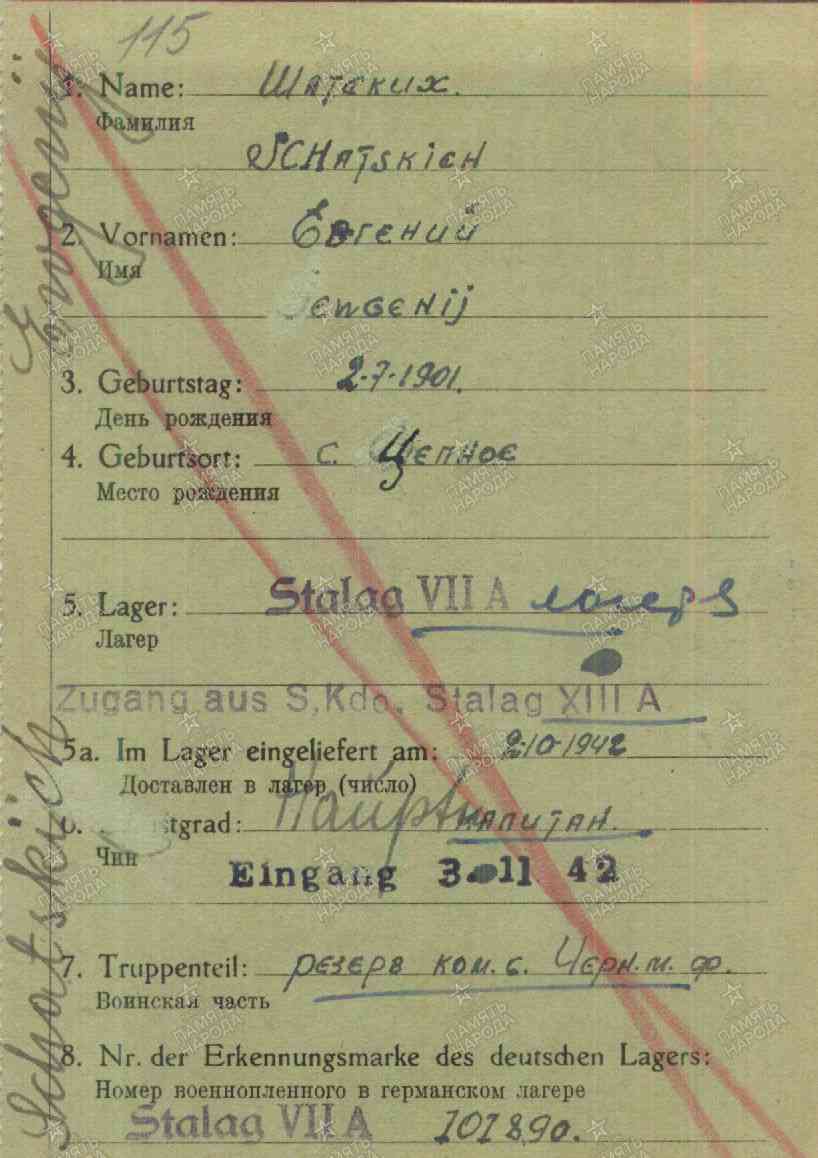 115
1. Name: Шатских.
Фамилия
SCHatskich
2. Vornamen: Евгений
Имя
ewgenij
3. Geburtstag: 2.7.1901.
День рождения
4. Geburtsort: с. Цепное
Место рождения
5. Lager: Stalag VII A лагерь
Лагер
Zugang aus S,Kdo, Stalag XIII A
5a. Im Lager eingeliefert am: 2-10-1942
Доставлен в лагер (число)
6. stgrad: Hauptm капитан.
Чин
Eingang 3. 11 42
7. Truppenteil: резерв ком. с. Черн. м. ф.
Воинская часть
8. Nr. der Erkennungsmarke des deutschen Lagers:
Номер военнопленного в германском лагере
Stalag VII A 101890.
Schatskich Ewgenij
ПАМЯТЬ НАРОДА